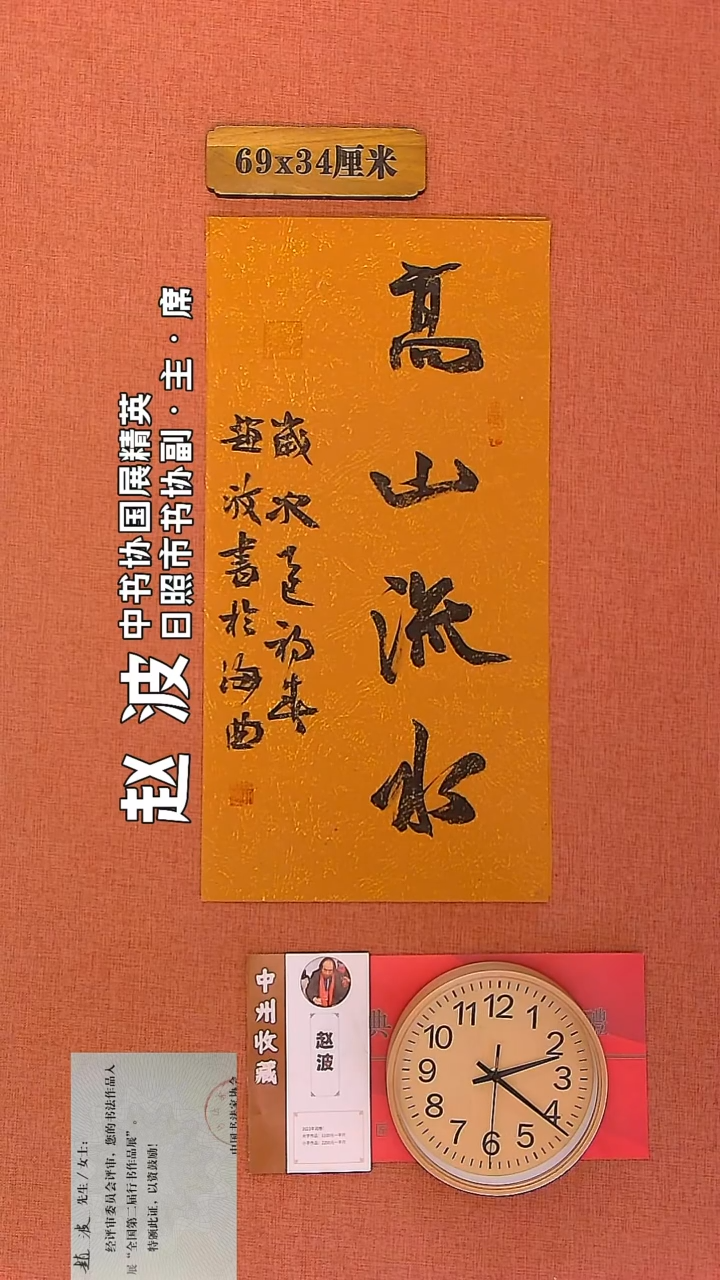 69x34厘米
高山流水
歲次乙巳初春
趙波書於海曲
赵波
中书协国展精英
日照市书协副·主·席
中书协收藏
赵波
12
1
2
3
4
5
6
7
8
9
10
11
趙波 先生/女士:
经评审委员会评审,您的书法作品入
展“全国第二届行书作品展”。
特颁此证,以资鼓励!
中国书法家协会